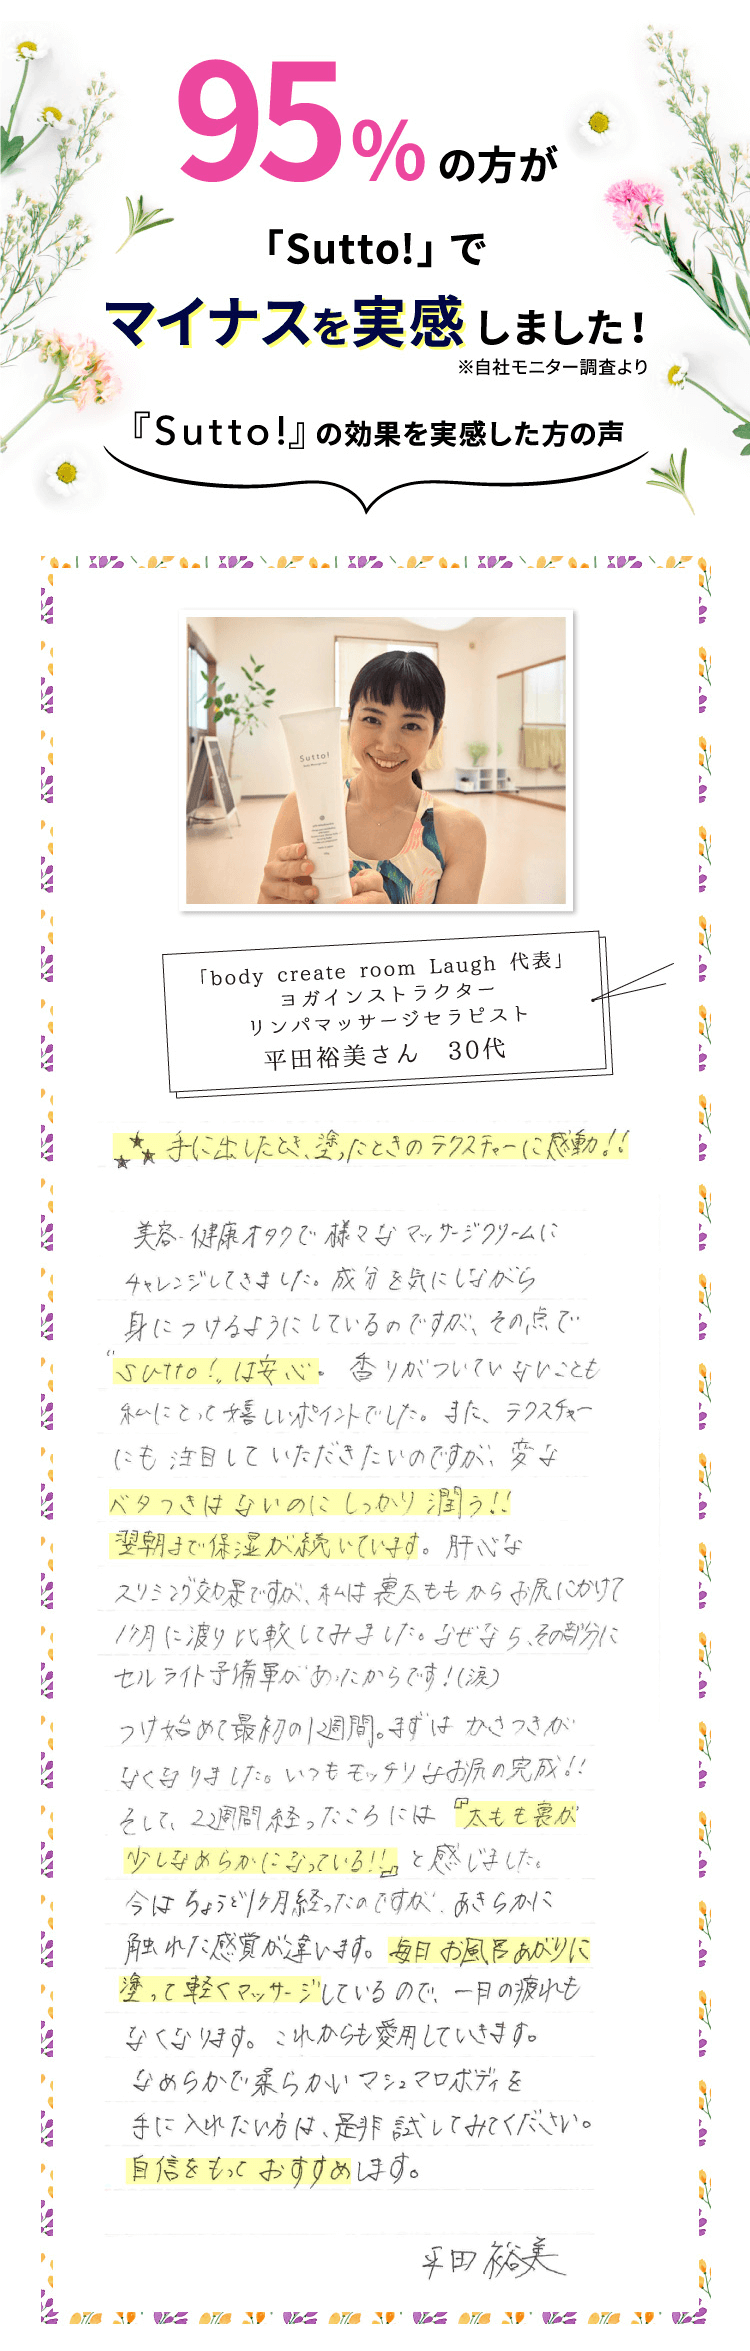 95%の方が
「Sutto!」で
マイナスを実感しました！
※自社モニター調査より
『Sutto!』の効果を実感した方の声
Sutto!
「body create room Laugh 代表」
ヨガインストラクター
リンパマッサージセラピスト
平田裕美さん　30代
手に出したとき、塗ったときのテクスチャーに感動!!
美容・健康オタクで様々なマッサージクリームに
チャレンジしてきました。成分を気にしながら
身につけるようにしているのですが、その点で
"sutto!"は安心。香りがついていないことも
私にとって嬉しいポイントでした。また、テクスチャー
にも注目していただきたいのですが、変な
ベタつきはないのにしっかり潤う!!
翌朝まで保湿が続いています。肝心な
スリミング効果ですが、私は裏太ももからお尻にかけて
1ヶ月に渡り比較してみました。なぜなら、その部分に
セルライト予備軍があったからです！(涙)
つけ始めて最初の1週間。まずはかさつきが
なくなりました。いつもモッチリなお尻の完成!!
そして、2週間経ったころには『太もも裏が
少しなめらかになっている!!』と感じました。
今はちょうど1ヶ月経ったのですが、あきらかに
触れた感覚が違います。毎日お風呂あがりに
塗って軽くマッサージしているので、一日の疲れも
なくなります。これからも愛用していきます。
なめらかで柔らかいマシュマロボディを
手に入れたい方は、是非試してみてください。
自信をもっておすすめします。
平田裕美